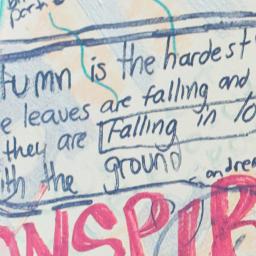 tumn is the hardest
e leaves are falling and
they are falling in lo
ith the ground
- andre
NSPIR